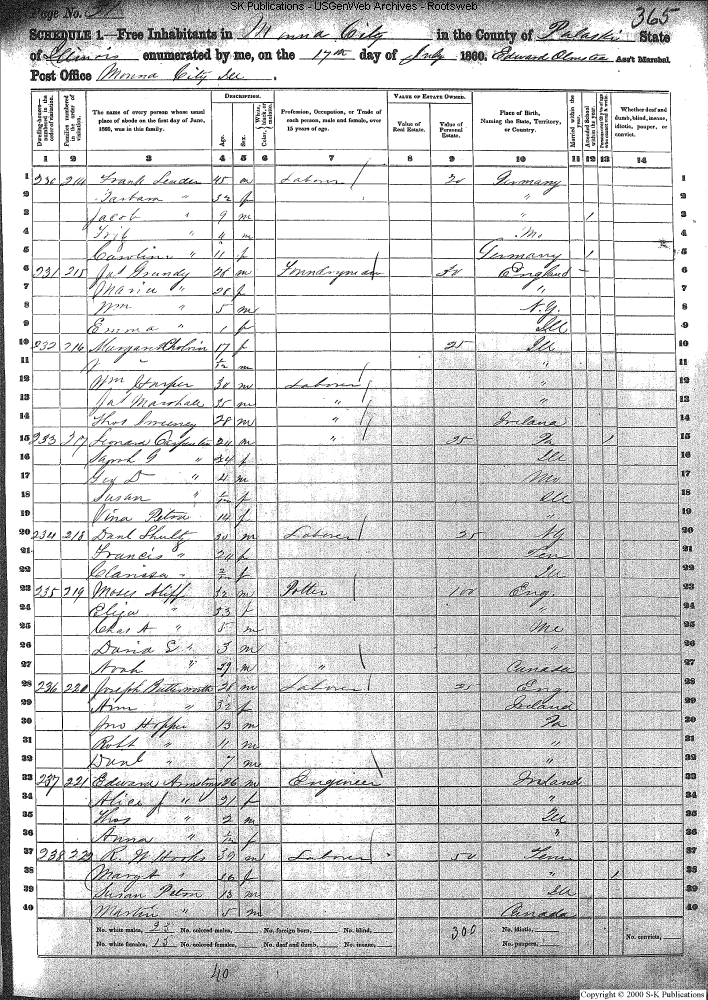 SK Publications - USGenWeb Archives - Rootsweb
Page No. 365
SCHEDULE 1.—Free Inhabitants in City in the County of Pulaski State
of Illinois enumerated by me, on the 17th day of July 1860. Edward Ass't Marshal.
Post Office City Ill.
Dwelling-houses—numbered in the order of visitation.
Families numbered in the order of visitation.
The name of every person whose usual place of abode on the first day of June, 1860, was in this family.
DESCRIPTION.
Age.
Sex.
Color,
Profession, Occupation, or Trade of each person, male and female, over 15 years of age.
VALUE OF ESTATE OWNED.
Value of Real Estate.
Value of Personal Estate.
Place of Birth, Naming the State, Territory, or Country.
Married within the year.
Attended School within the year.
Whether deaf and dumb, blind, insane, idiotic, pauper, or convict.
1 2 3 4 5 6 7 8 9 10 11 12 13 14
1 230 214 Frank 45 m Laborer Germany 1
2 " 32 f " 2
3 Jacob " 9 m " 1 3
4 " m Mo. 4
5 Caroline " 11 f Germany 1 5
6 231 215 Jas Grundy m Foundryman England 6
7 Maria " 28 f " 7
8 Wm " 5 m N.Y. 8
9 Emma " 1 f Ill 9
10 232 216 Margaret 17 f 25 Ill 10
11 " m " 11
12 Wm Harper 30 m Laborer " 12
13 Jas Marshall 35 m " " 13
14 Thos Sweeney 28 m " Ireland 14
15 233 217 Leonard Carpenter m 25 Pa 1 15
16 Sarah G " 24 f Ill 16
17 Geo D " 4 m Mo 17
18 Susan " f Ill 18
19 14 f " 19
20 234 218 Danl Shultz 30 m Laborer 25 NY 20
21 Francis " f Ten 21
22 Clarissa " f Ill 22
23 235 219 Moses 32 m Potter 100 Eng. 23
24 Eliza " 33 f " 24
25 Chas A " 5 m 25
26 David E " 3 m " 26
27 Noah " 29 m " Canada 27
28 236 220 Joseph Butterworth 28 m Laborer 25 Eng. 28
29 Ann " 32 f Ireland 29
30 Jno Hopper 13 m Pa 30
31 Robt " 11 m " 31
32 Danl " 7 m " 32
33 237 221 Edward Armstrong 26 m Engineer Ireland 33
34 Alice J " 21 f " 34
35 Thos " 2 m Ill 35
36 Anna " f " 36
37 238 222 R. N. Hooks 39 m Laborer 50 Tenn 37
38 Margt " f " 1 38
39 Susan 13 m Ill 39
40 Martin " 5 m Canada 40
No. white males, No. colored males, No. foreign born, No. blind, 300 No. idiotic,
No. white females, 15 No. colored females, No. deaf and dumb, No. insane, No. paupers, No. convicts,
40
Copyright © 2000 S-K Publications